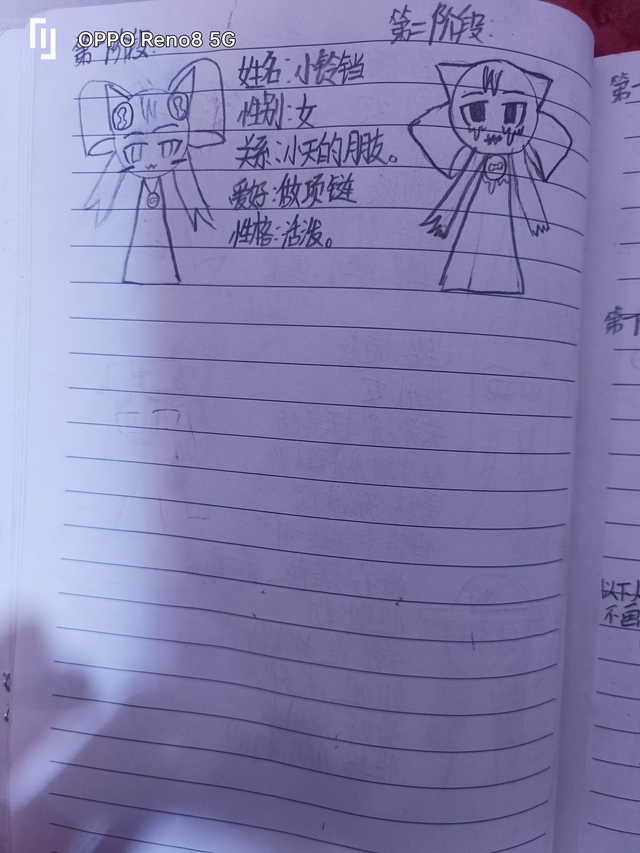 OPPO Reno8 5G
第一阶段:
第二阶段:
姓名:小铃铛
性别:女
关系:小天的朋友。
爱好:做项链
性格:活泼。
第一
第
以下人
不画